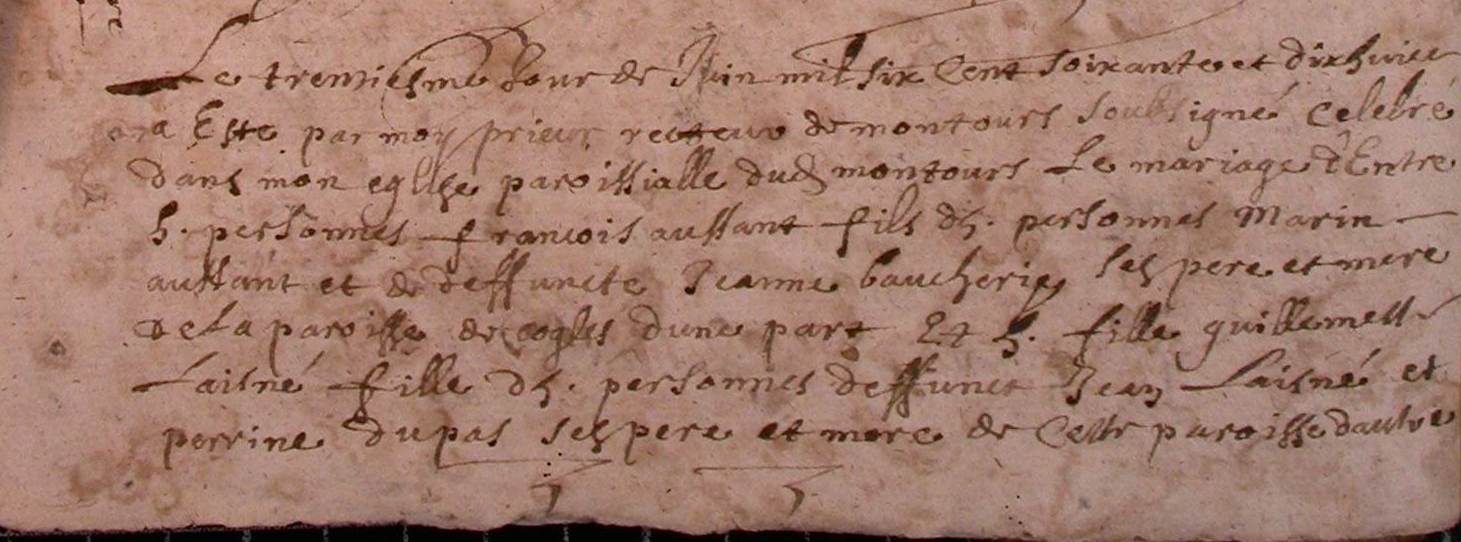 Le trentiesme Jour de Juin mil six Cent soixante et dixhuict
a Este par moy prieur recteur de montours soubsigné Celebré
dans mon eglise paroissialle dud montours Le mariage d'Entre
h. personnes francois aussant fils dh. personnes Marin
aussant et de deffuncte Jeanne baucherie ses pere et mere
de La paroisse de cogles dune part Et h. fille guillemette
Laisné fille dh. personnes deffunct Jean Laisné et
perrine dupas ses pere et mere de Cette paroisse dautre